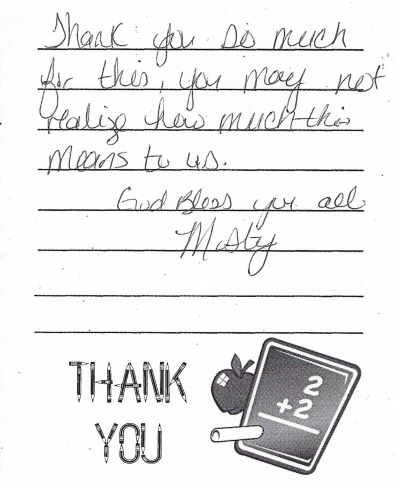 Thank you so much
for this, you may not
realize how much this
means to us.
God Bless you all
Misty
THANK
YOU
2
+2